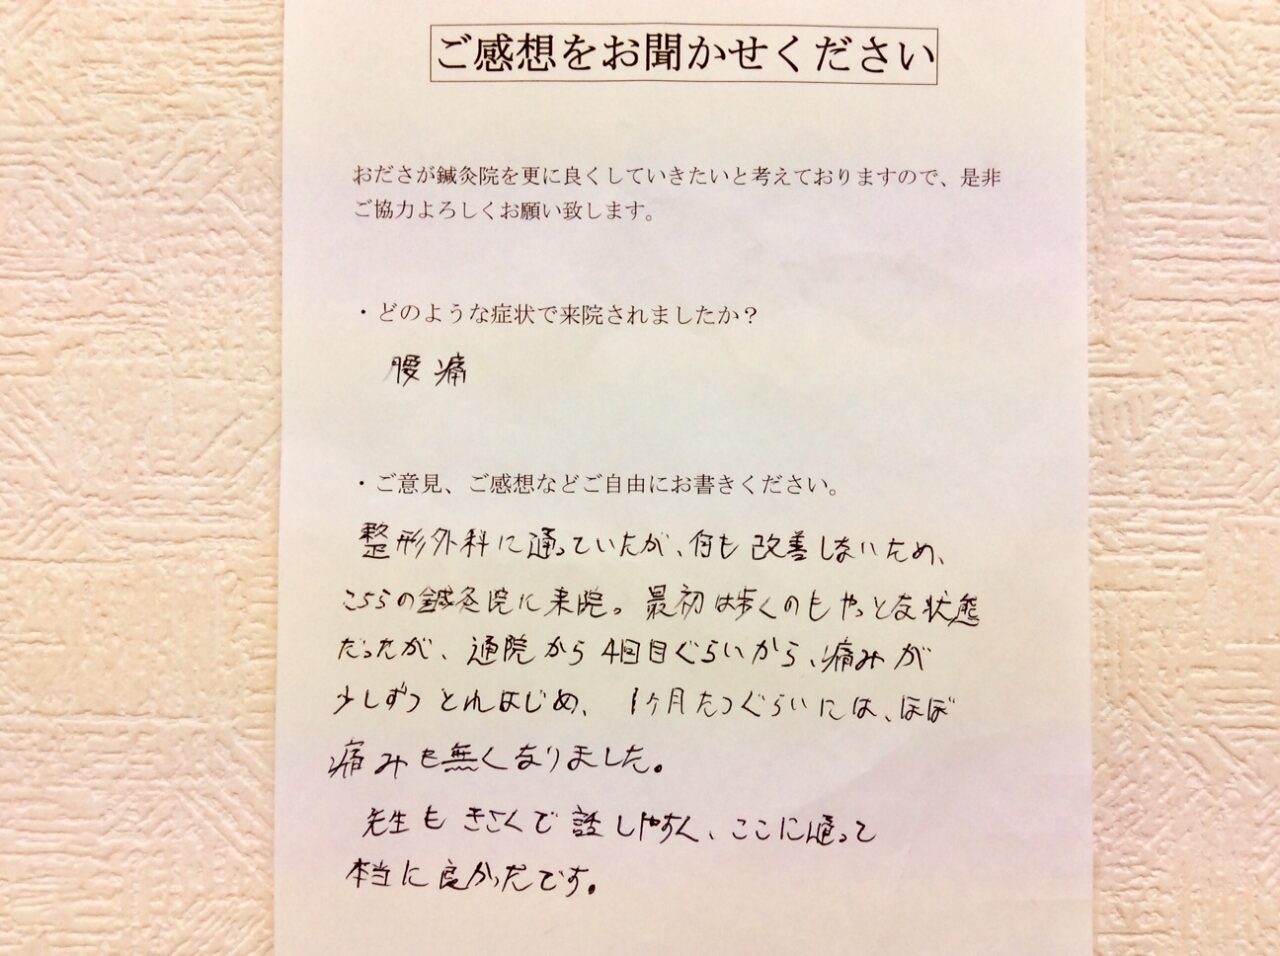 ご感想をお聞かせください
おださが鍼灸院を更に良くしていきたいと考えておりますので、是非
ご協力よろしくお願い致します。
・どのような症状で来院されましたか？
腰痛
・ご意見、ご感想などご自由にお書きください。
整形外科に通っていたが、何も改善しないため、
こちらの鍼灸院に来院。最初は歩くのもやっとな状態
だったが、通院から4回目ぐらいから、痛みが
少しずつとれはじめ、1ヶ月たつぐらいには、ほぼ
痛みも無くなりました。
先生もきさくで話しやすく、ここに通って
本当に良かったです。